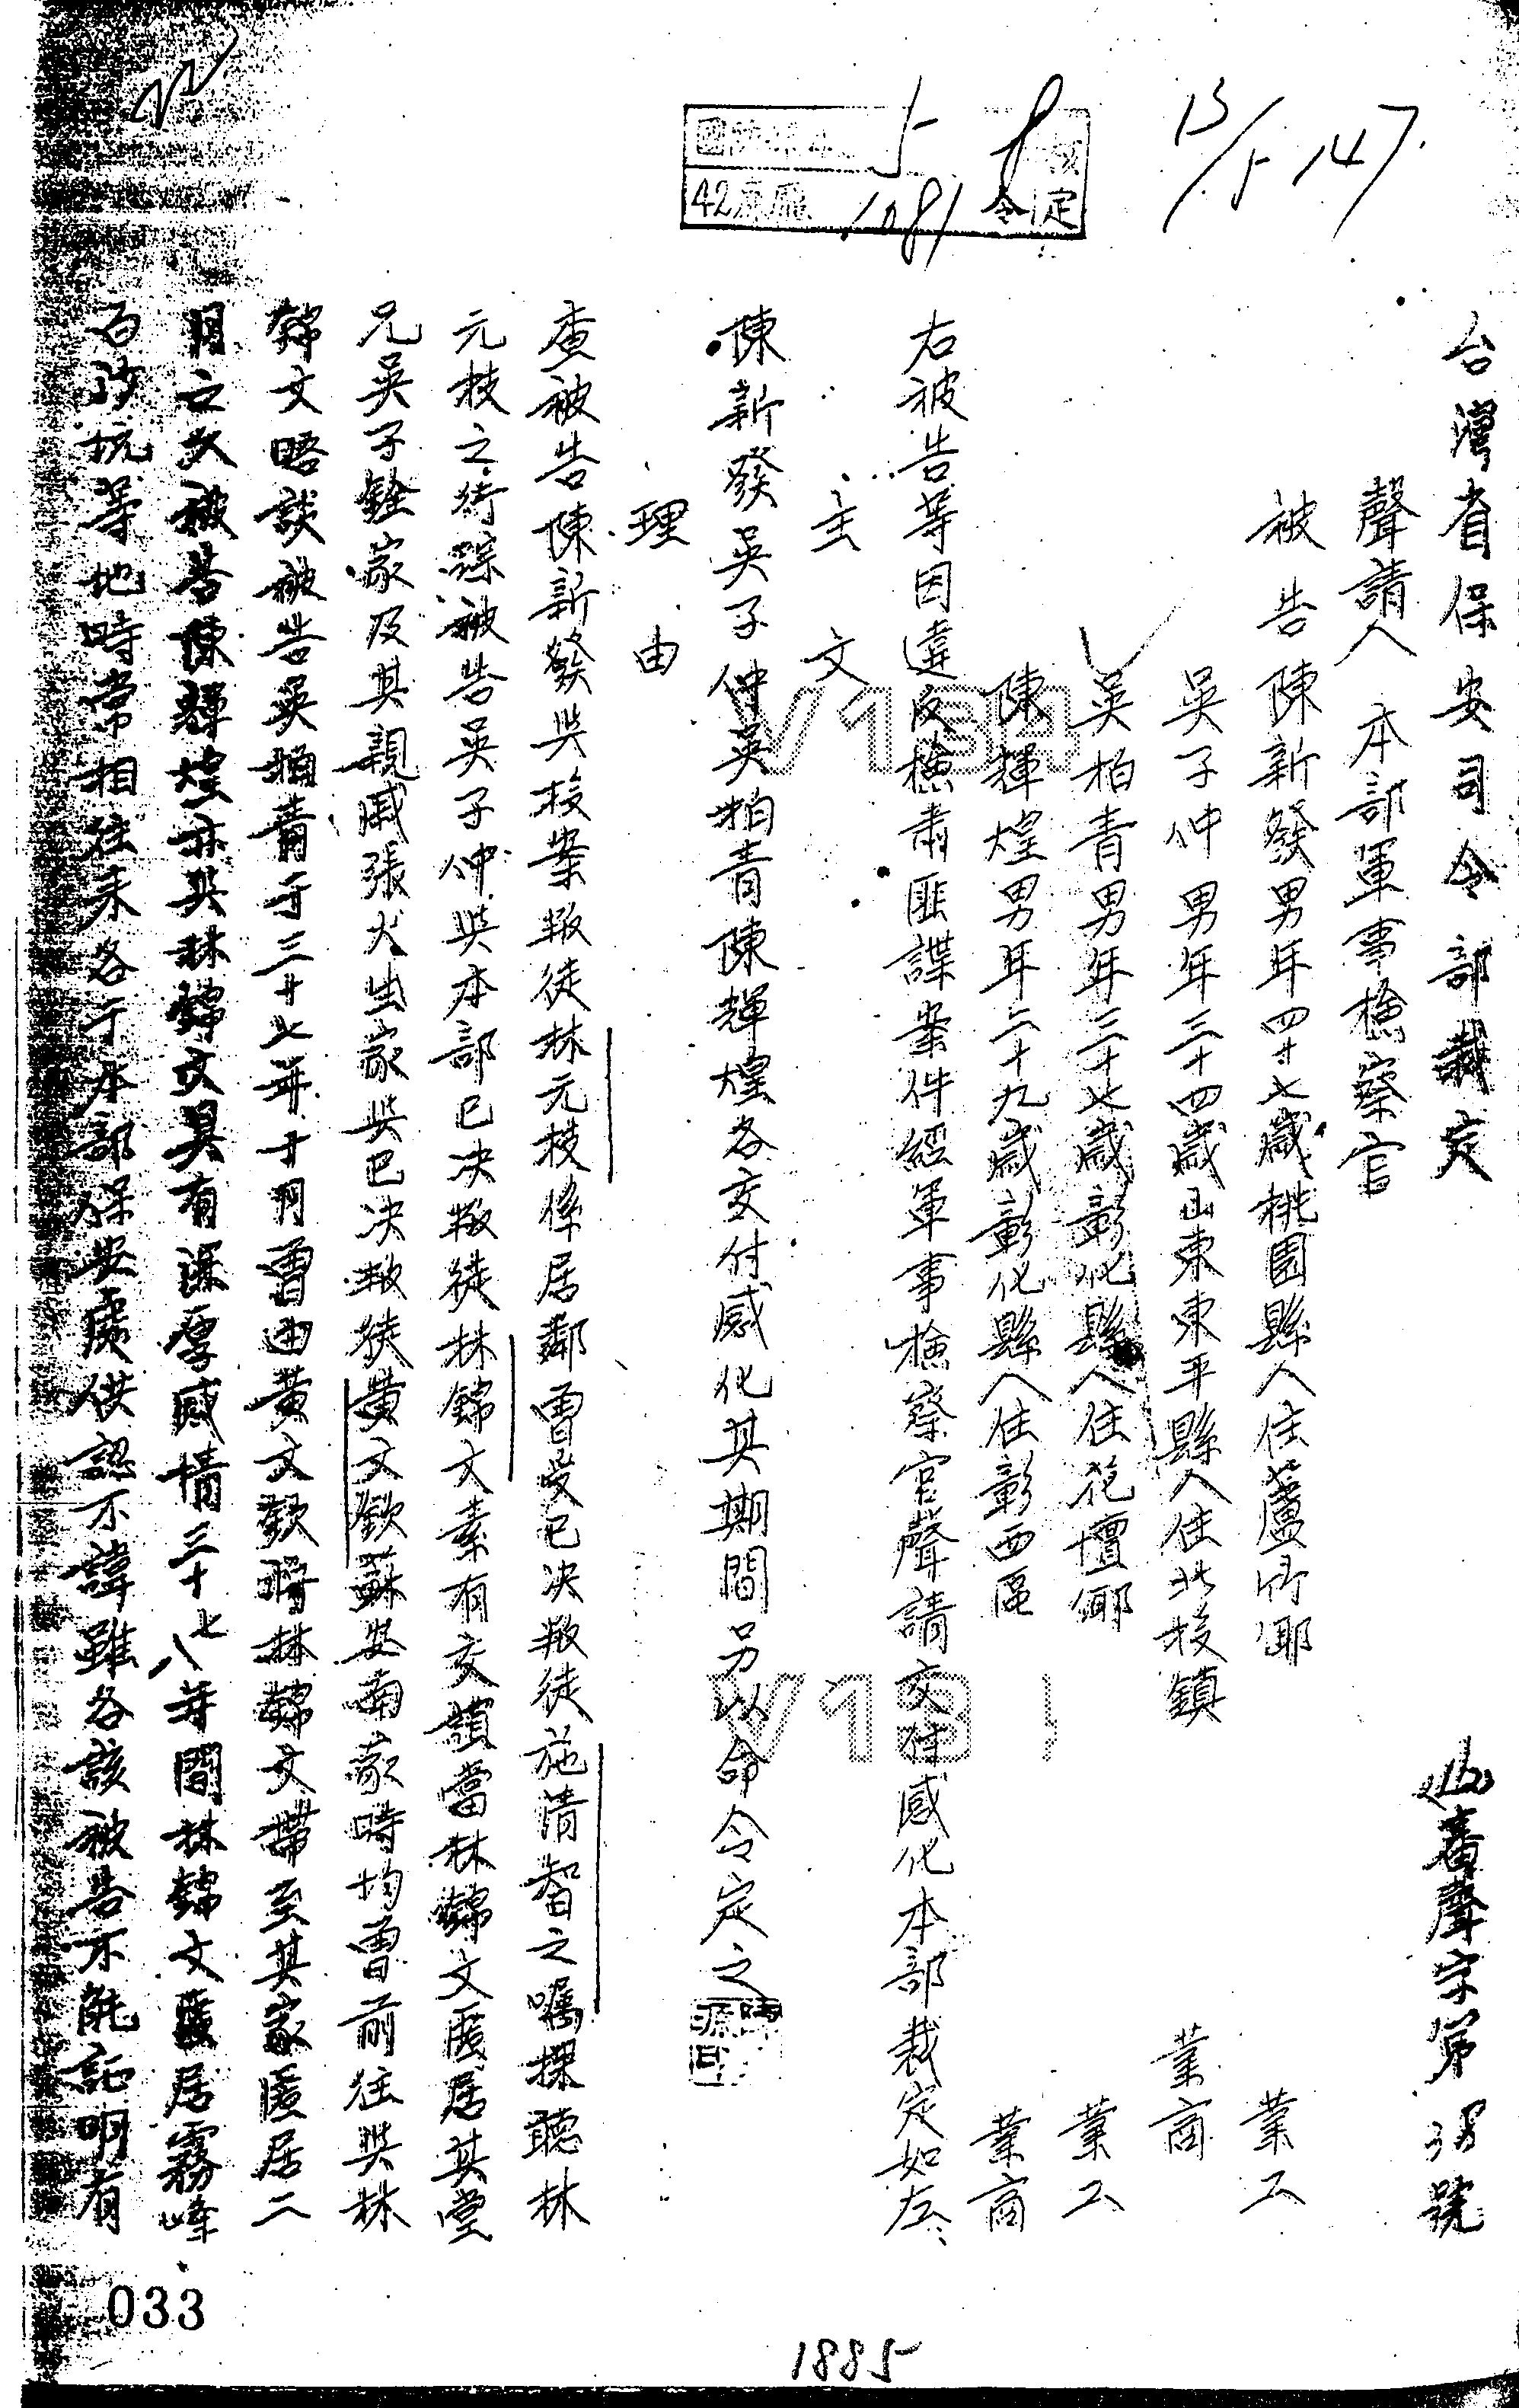 13/5 147
5 8
42 1081 令 定
台灣省保安司令部裁定 審聲字第38號
聲請人 本部軍事檢察官
被告 陳新發 男年四十七歲桃園縣人住蘆竹鄉 業工
吳子仲 男年三十四歲山東東平縣人住北投鎮 業商
吳柏青 男年三十七歲彰化縣人住花壇鄉 業工
陳輝煌 男年二十九歲彰化縣人住彰西區 業商
右被告等因違反檢肅匪諜案件經軍事檢察官聲請交付感化本部裁定如左
主文
陳新發吳子仲吳柏青陳輝煌各交付感化其期間另以命令定之
理由
查被告陳新發與投案叛徒林元枝係居鄰曾受已決叛徒施清智之囑探聽林
元枝之行踪被告吳子仲與本部已決叛徒林錦文素有交頭當林錦文匿居其堂
兄吳子銓家及其親戚張火生家與已決叛徒黃文欽蘇安南家時均曾前往與林
錦文晤談被告吳柏青于三十七年十月曾由黃文欽將林錦文帶至其家匿居二
月之久被告陳輝煌亦與林錦文具有深厚感情三十七八年間林錦文匿居霧峰
坑等地時常相往來各于本部保安處供認不諱雖各該被告不能証明有
033
1885